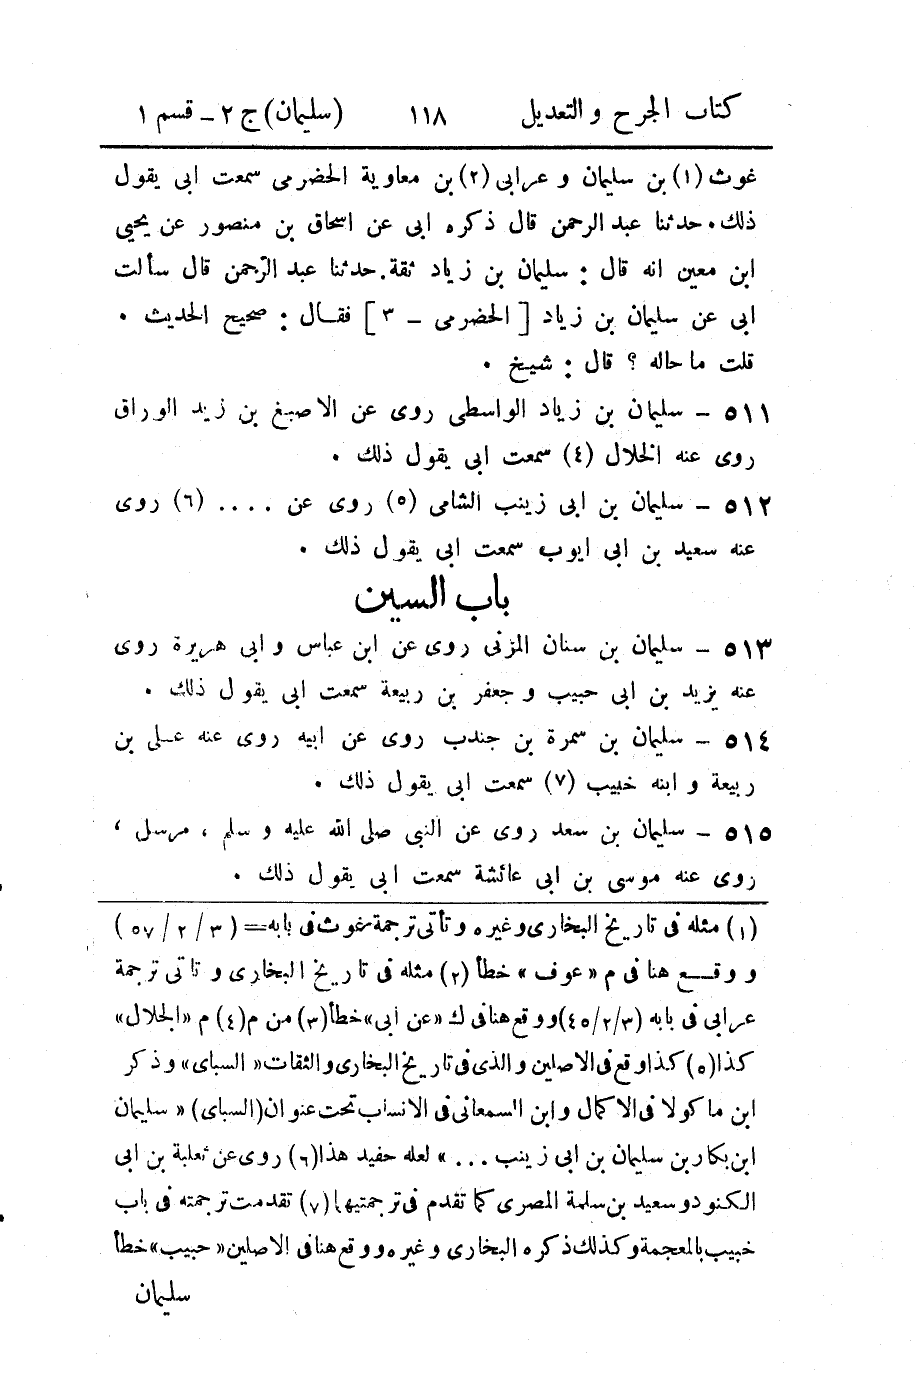 كتاب الجرح والتعديل ١١٨ (سليمان) ج ٢ - قسم ١
غوث (١) بن سليمان و عرابى (٢) بن معاوية الحضرمى سمعت ابى يقول
ذلك . حدثنا عبد الرحمن قال ذكره ابى عن اسحاق بن منصور عن يحيى
ابن معين انه قال : سليمان بن زياد ثقة . حدثنا عبد الرحمن قال سألت
ابى عن سليمان بن زياد [ الحضرمى - ٣ ] فقال : صحيح الحديث .
قلت ما حاله ؟ قال : شيخ .
٥١١ - سليمان بن زياد الواسطى روى عن الاصبغ بن زيد الوراق
روى عنه الخلال (٤) سمعت ابى يقول ذلك .
٥١٢ - سليمان بن ابى زينب الشامى (٥) روى عن .... (٦) روى
عنه سعيد بن ابى ايوب سمعت ابى يقول ذلك .
باب السين
٥١٣ - سليمان بن سنان المزنى روى عن ابن عباس و ابى هريرة روى
عنه يزيد بن ابى حبيب و جعفر بن ربيعة سمعت ابى يقول ذلك .
٥١٤ - سليمان بن سمرة بن جندب روى عن ابيه روى عنه على بن
ربيعة و ابنه خبيب (٧) سمعت ابى يقول ذلك .
٥١٥ - سليمان بن سعد روى عن النبى صلى الله عليه و سلم ، مرسل ،
روى عنه موسى بن ابى عائشة سمعت ابى يقول ذلك .
(١) مثله فى تاريخ البخارى وغيره وتأتى ترجمة غوث فى بابه = (٣/ ٢/ ٥٧)
و وقع هنا فى م « عوف » خطأ (٢) مثله فى تاريخ البخارى و تاتى ترجمة
عرابى فى بابه (٣/ ٢/ ٤٥) ووقع هنا فى ك « عن ابى » خطأ (٣) من م (٤) م « الجلال »
كذا (٥) كذا وقع فى الاصلين والذى فى تاريخ البخارى والثقات « السباى » وذكر
ابن ماكولا فى الاكمال و ابن السمعانى فى الانساب تحت عنوان (السباى) « سليمان
ابن بكار بن سليمان بن ابى زينب ... » لعله حفيد هذا (٦) روى عن ثعلبة بن ابى
الكنود و سعيد بن سلمة المصرى كما تقدم فى ترجمتيهما (٧) تقدمت ترجمته فى باب
خبيب بالمعجمة وكذلك ذكره البخارى و غيره ووقع هنا فى الاصلين « حبيب » خطأ
سليمان